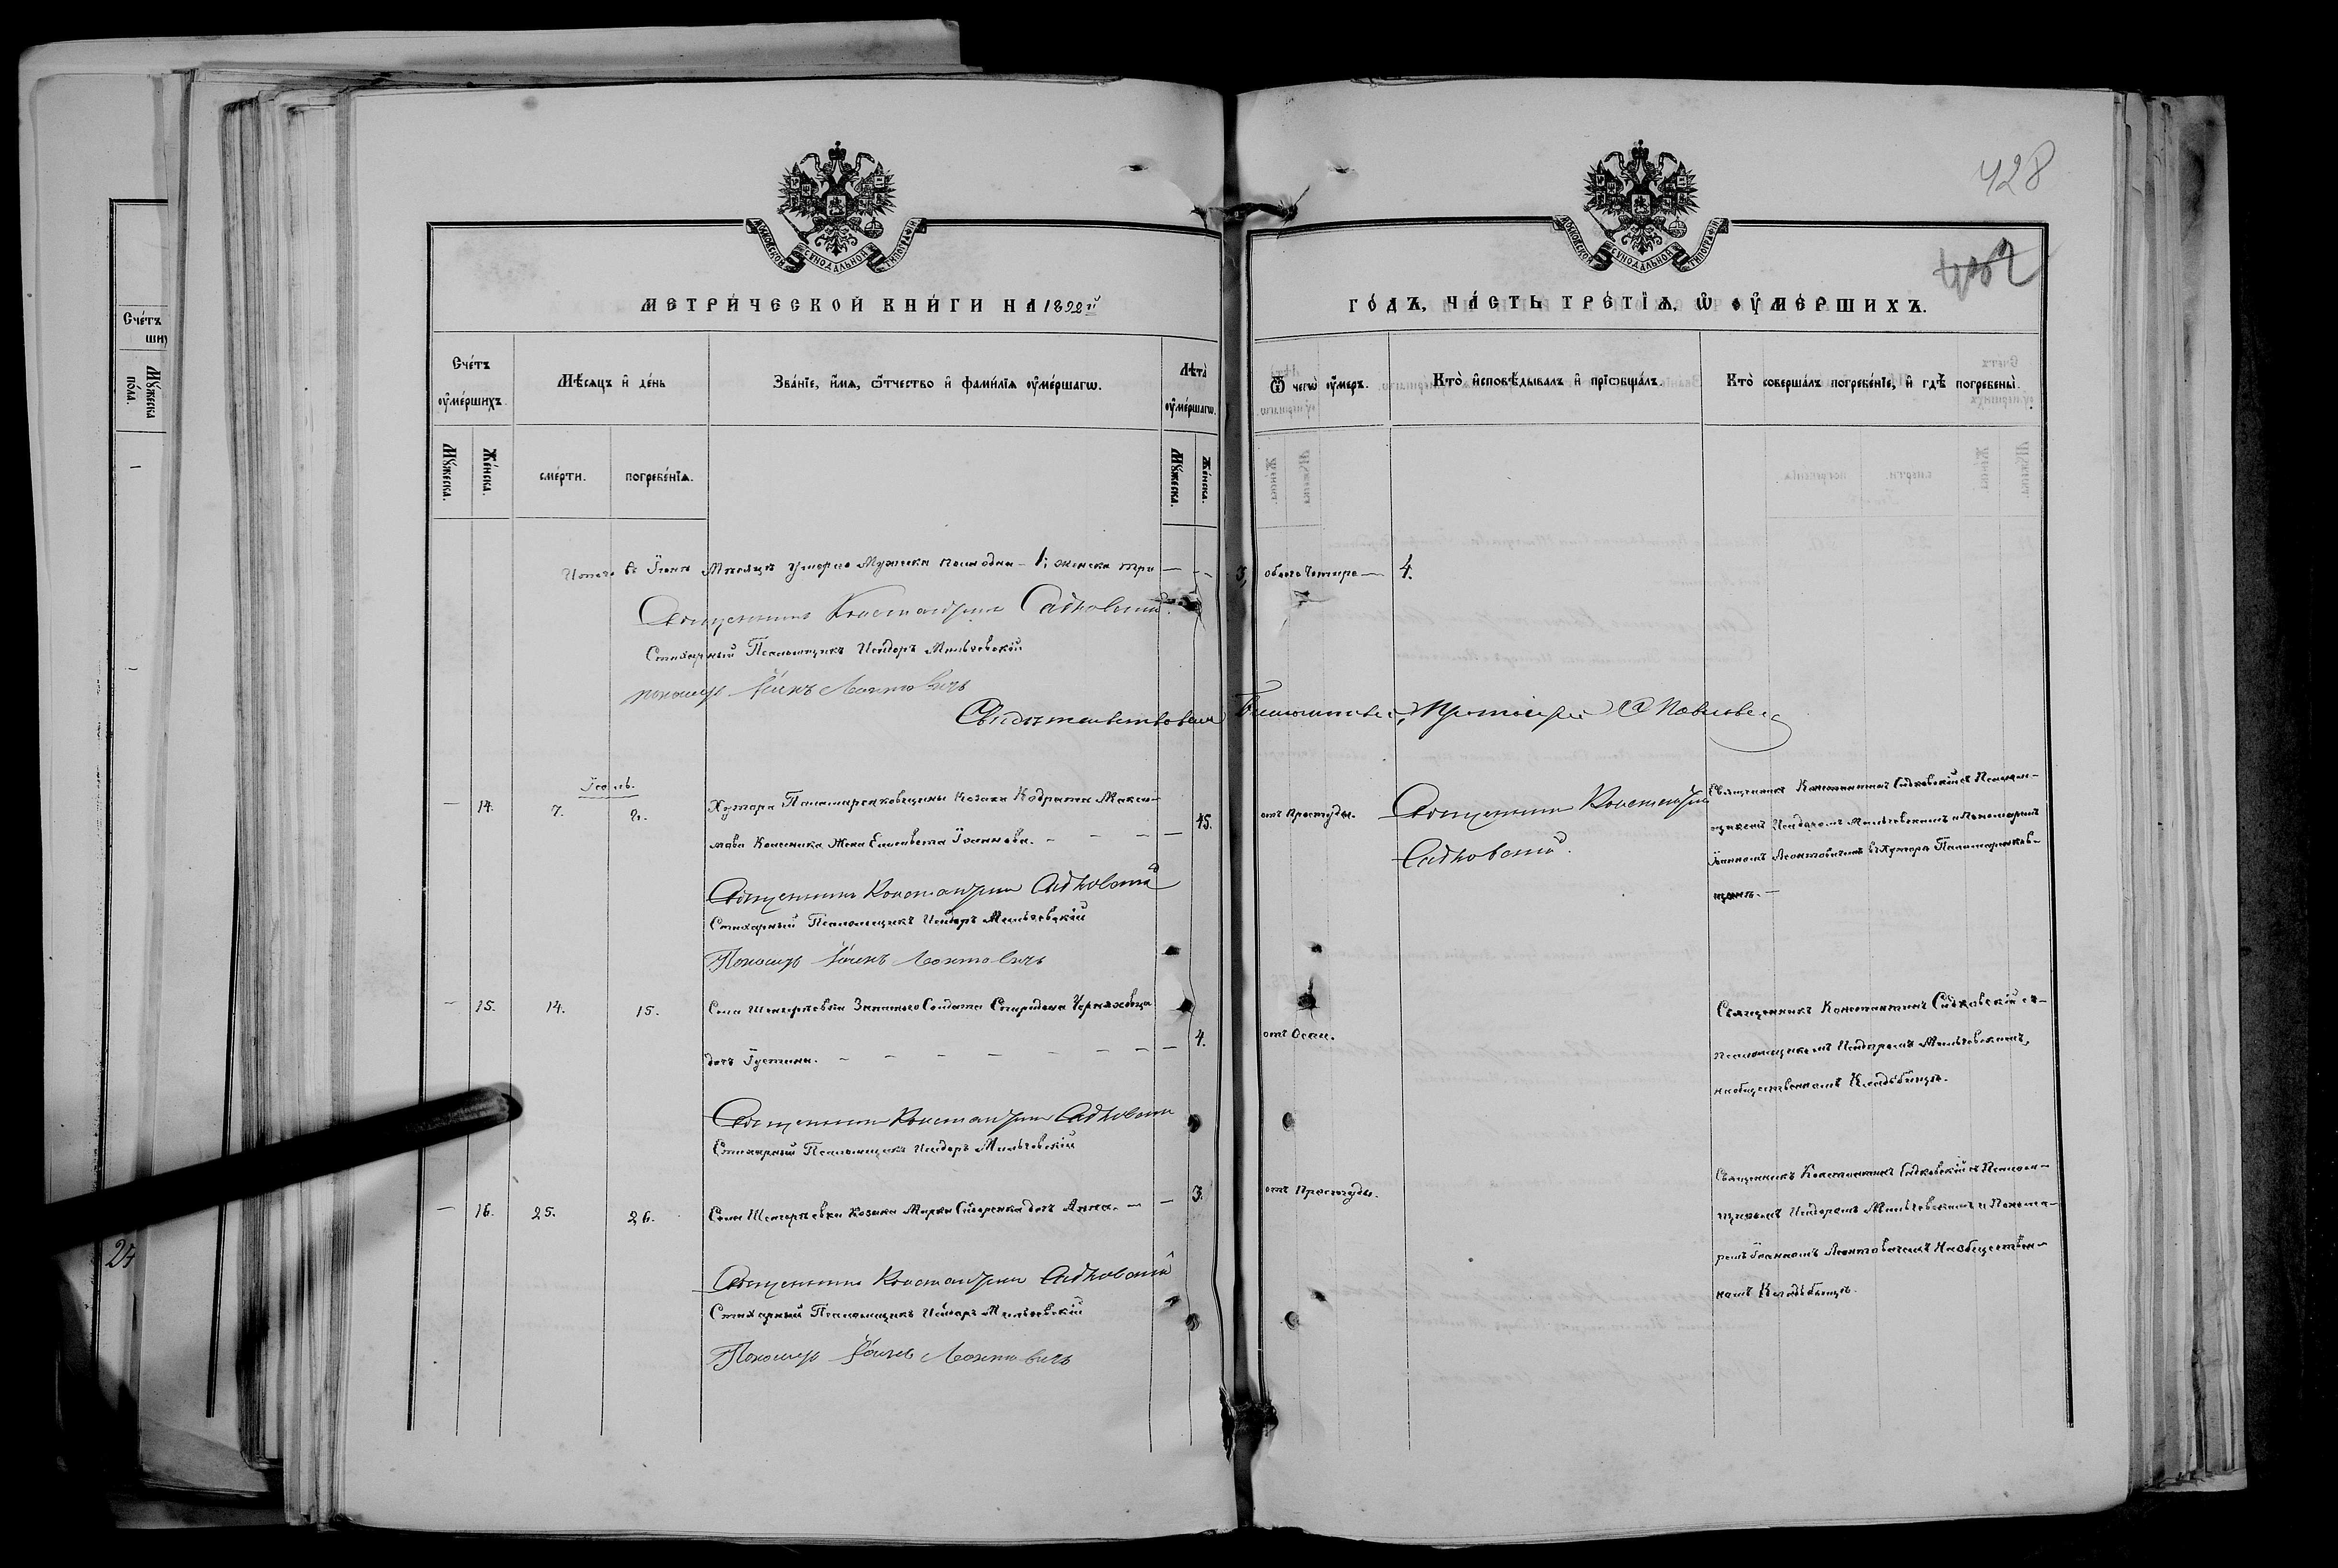 428
МОСКОВСКОЙ СѴНОДАЛЬНОЙ ТИПОГРАФІИ
МОСКОВСКОЙ СѴНОДАЛЬНОЙ ТИПОГРАФІИ
МЕТРИ́ЧЕСКОЙ КНИ́ГИ НА 1892й
ГО́ДЪ, ЧА́СТЬ ТРЕ́ТІѦ, Ѡ ОУ҆МЕ́РШИХЪ.
Сче́тъ оу҆ме́ршихъ.
Мѣ́сяцъ и҆ де́нь
Зва́ніе, и҆́мя, ѻ҆́тчество и҆ фами́лія оу҆ме́ршагѡ.
Лѣта̀ оу҆ме́ршагѡ.
Ѿ чегѡ̀ оу҆́меръ.
Кто̀ и҆сповѣ́дывалъ и҆ прїѡбща́лъ.
Кто̀ соверша́лъ погребе́ніе, и҆ гдѣ̀ погребены̀.
Му́жеска.
Же́нска.
сме́рти.
погребе́нія.
Му́жеска.
Же́нска.
Итого въ Іюнѣ Мѣсяцѣ умерло Мужеска пола одна - 1; женска три — 3, обоего четыре — 4.
Священникъ Константинъ Садковскій.
Стихарный Псаломщикъ Исидоръ Мильчевскій
пономарь Іоаннъ Леонтовичъ
Свидѣтельствовалъ Благочинный, Протоіерей
Іюль.
— 14. 7. Хутора Паламаренковщины Козака Кодрата Макси-
мова Колесника Жена Елисавета Іоаннова. — 45. отъ Простуды.
Священникъ Константинъ
Садковскій.
Священникъ Константинъ Садковскій съ Псалом-
щикомъ Исидоромъ Мильчевскимъ и Пономаремъ
Іоанномъ Леонтовичемъ въ Хуторѣ Паламаренков-
щинѣ. —
Священникъ Константинъ Садковскій
Стихарный Псаломщикъ Исидоръ Мильчевскій
Пономарь Іоаннъ Леонтовичъ
— 15. 14. 15. Села Запаснаго Солдата Спиридона Черняховца
дочь Іустина. — 4. отъ Оспы.
Священникъ Константинъ Садковскій съ-
псаломщикомъ Исидоромъ Мильчевскимъ,
на общественномъ Кладбищѣ.
Священникъ Константинъ Садковскій
Стихарный Псаломщикъ Исидоръ Мильчевскій
— 16. 25. 26. Села Козака Марка Сидоренка дочь Анна. — 3. отъ Простуды.
Священникъ Константинъ Садковскій съ Псалом-
щикомъ Исидоромъ Мильчевскимъ и Понома-
ремъ Іоанномъ Леонтовичемъ На общественн-
номъ Кладбищѣ.
Священникъ Константинъ Садковскій
Стихарный Псаломщикъ Исидоръ Мильчевскій
Пономарь Іоаннъ Леонтовичъ
Сче́тъ
Му́жеска по́ла.
24